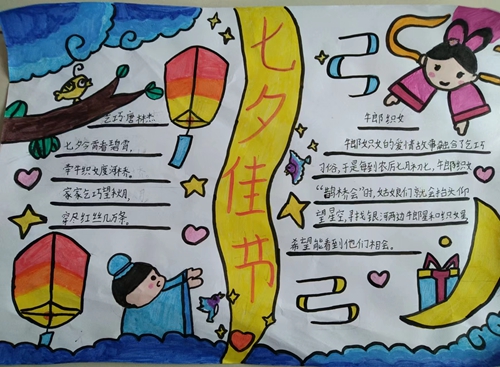 七夕佳节
乞巧唐林杰
七夕今宵看碧霄,
牵牛织女渡河桥。
家家乞巧望秋月,
穿尽红丝几万条。
牛郎织女
牛郎织女的爱情故事融合了乞巧
习俗,于是每到农历七月初七,牛郎织女
“鹊桥会”时,姑娘们就会抬头仰
望星空,寻找银河两边牛郎星和织女星
希望能看到他们相会。